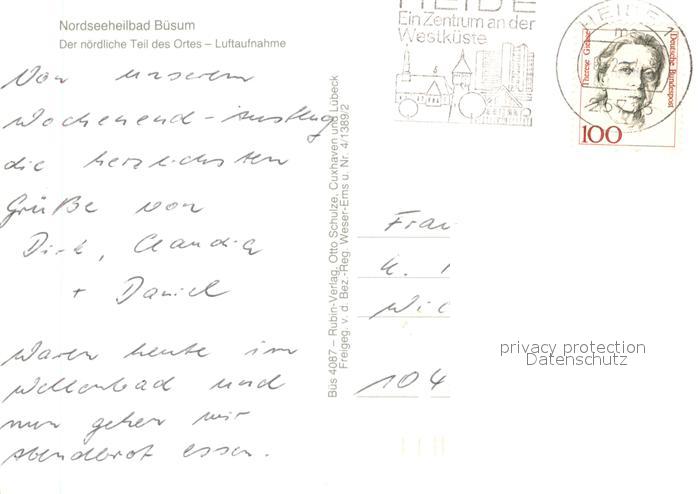 Nordseeheilbad Büsum
Der nördliche Teil des Ortes – Luftaufnahme
Von unserem
Wochenend-Ausflug
die herzlichsten
Grüße von
Dirk, Claudia
+ Daniel
Waren heute im
Wellenbad und
nun gehen wir
Abendbrot essen.
Büs 4087 – Rubin-Verlag, Otto Schulze, Cuxhaven und Lübeck
Freigeg. v. d. Bez.-Reg. Weser-Ems u. Nr. 4/1389/2
HEIDE
Ein Zentrum an der
Westküste
HEIDE
Therese Giehse
Deutsche Bundespost
100
104
privacy protection
Datenschutz